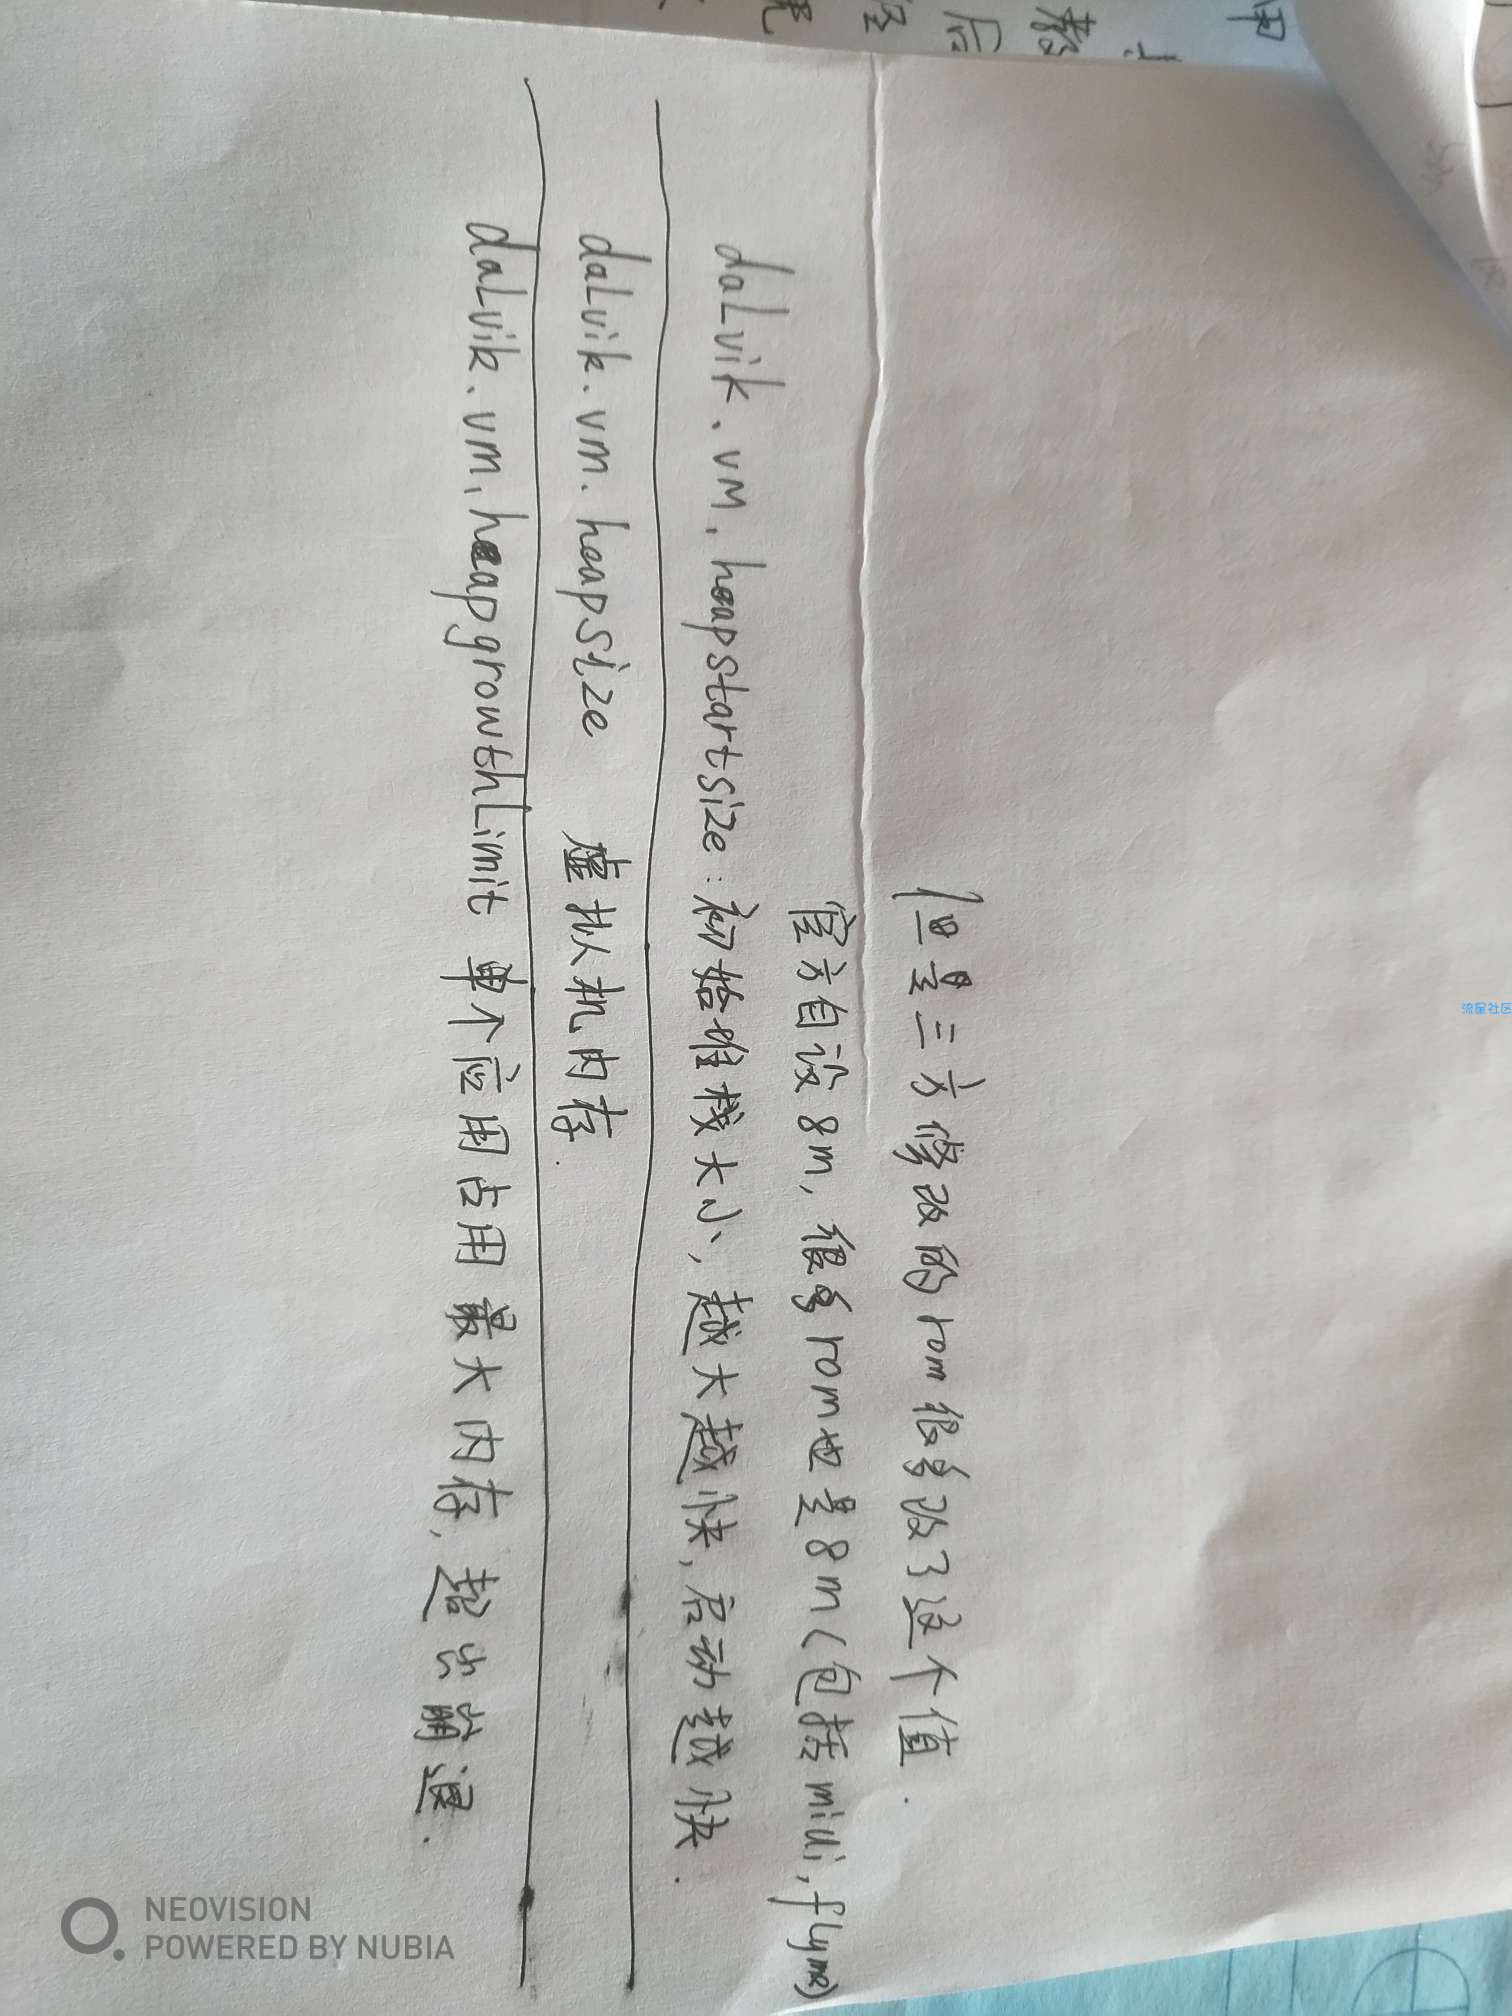 但是三方修改的rom很多改了这个值.
官方自设8m, 很多rom也是8m(包括miui, flyme)
dalvik.vm.heapstartsize:初始堆栈大小, 越大越快, 启动越快.
dalvik.vm.heapsize 虚拟机内存.
dalvik.vm.heapgrowthlimit 单个应用占用最大内存, 超出崩退.
流星社区
NEOVISION
POWERED BY NUBIA